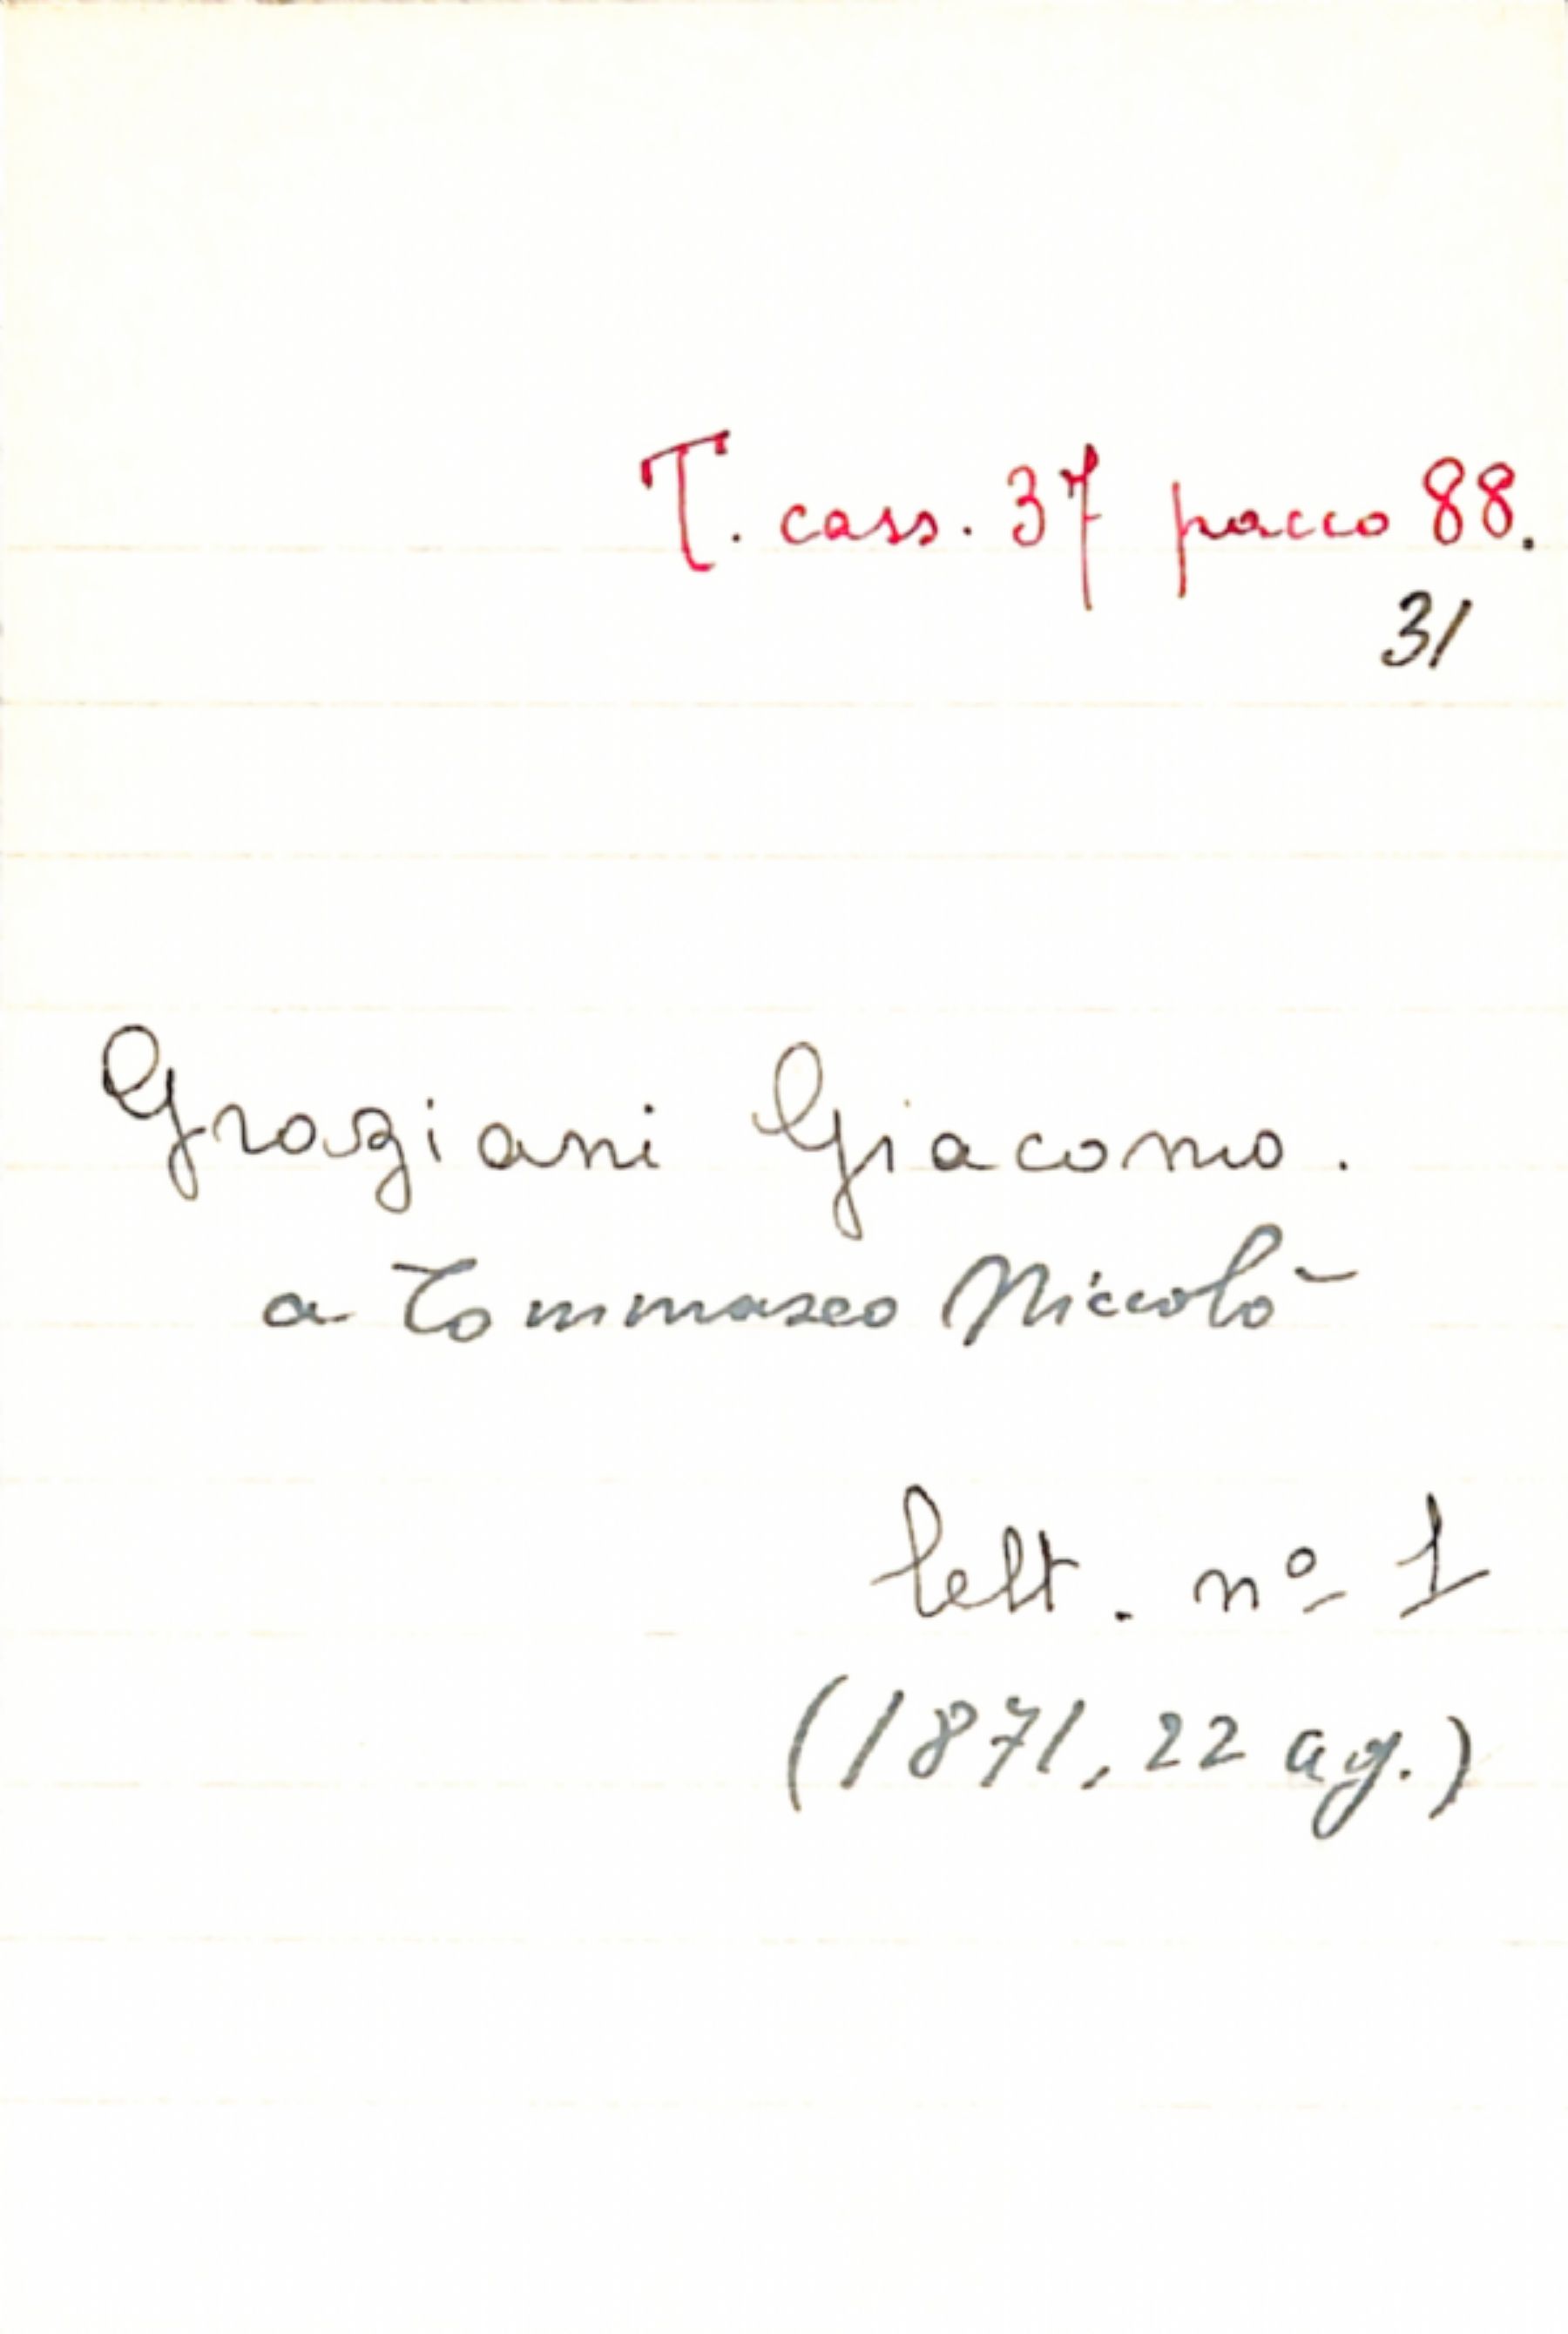 T. cass. 37 pacco 88.
31
Graziani Giacomo.
a Tommaseo Niccolò
lett. nº 1
(1871, 22 ag.)